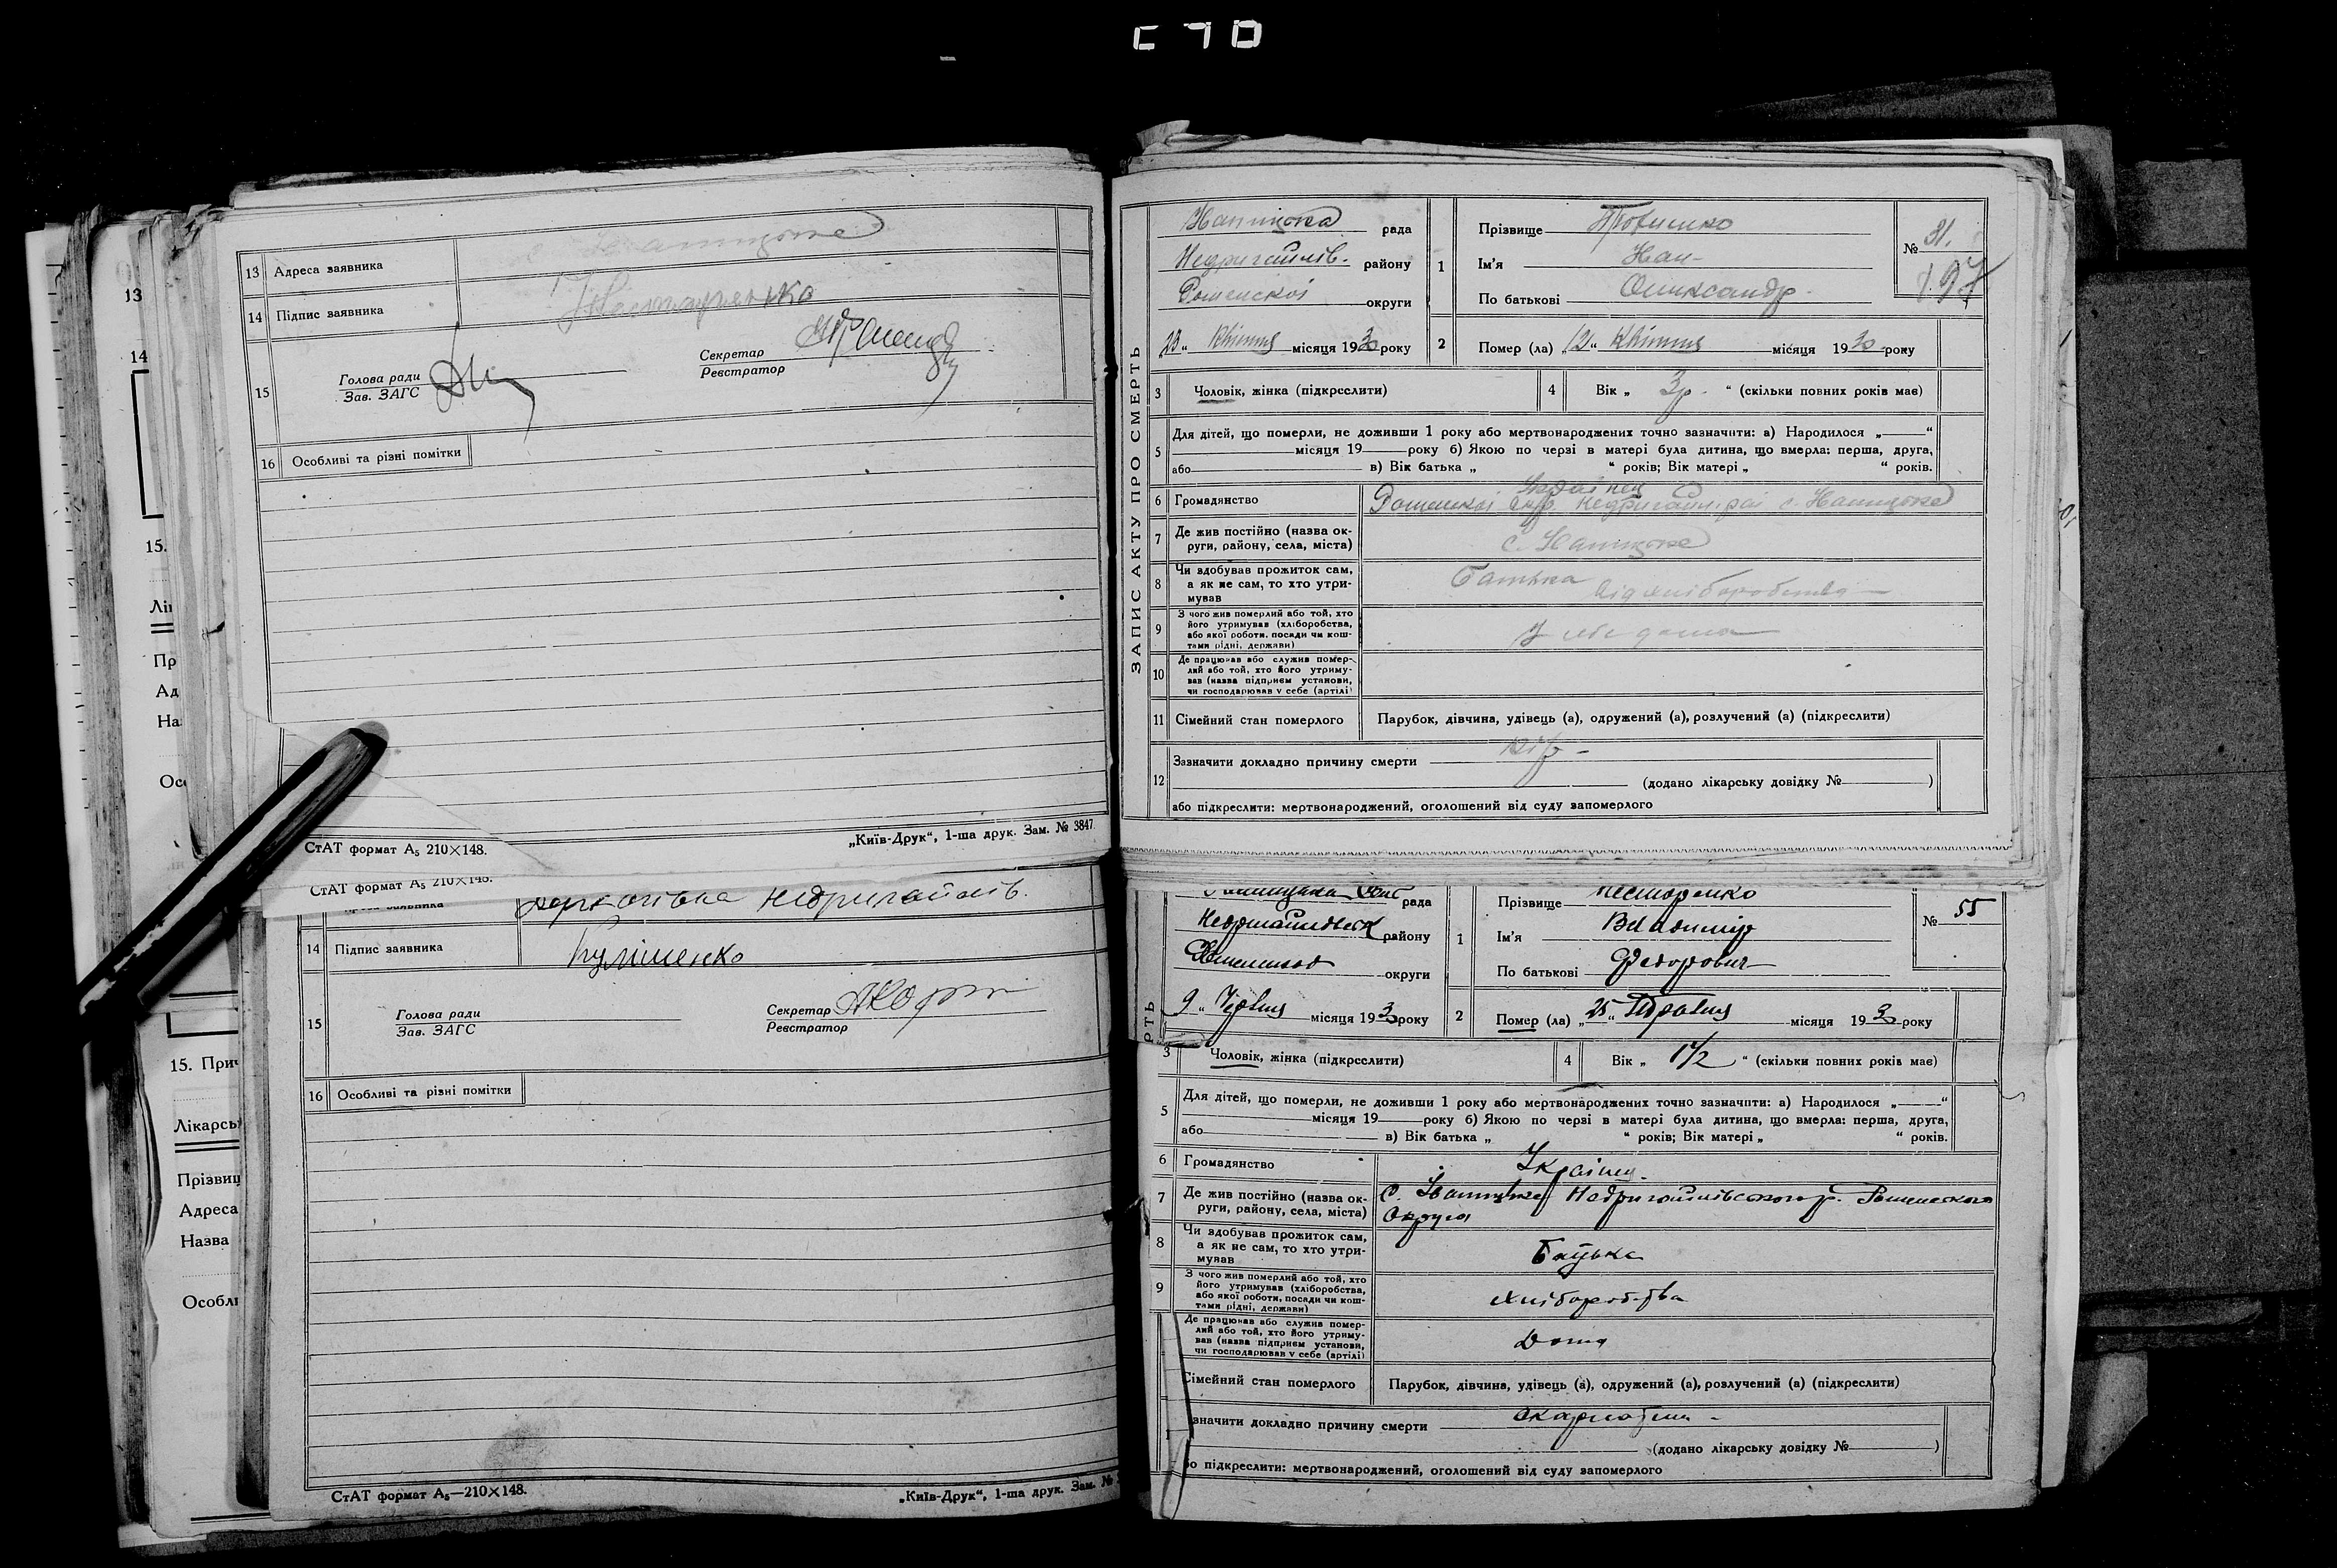 13 Адреса заявника
14 Підпис заявника
15 Голова ради
Зав. ЗАГС
Секретар
Реєстратор
16 Особливі та різні помітки
СтАТ формат А₅ 210×148.
„Київ-Друк“, 1-ша друк. Зам. № 3847
СтАТ формат А₅ 210×148.
Недригайлів.
14 Підпис заявника Кулішенко
15 Голова ради
Зав. ЗАГС
Секретар
Реєстратор
16 Особливі та різні помітки
СтАТ формат А₅—210×148.
„Київ-Друк“, 1-ша друк. Зам. №
13
14
15.
Лі
Пр
Ад
На
Ос
15. Прич
Лікарсь
Прізвищ
Адреса
Назва
Особл
ЗАПИС АКТУ ПРО СМЕРТЬ
рада
Недригайлів. району
Роменської округи
23 „ Квітня місяця 1930 року
1 Прізвище
Ім'я Иван
По батькові Олександр.
№ 31.
197
2 Помер (ла) „12“ Квітня місяця 1930 року
3 Чоловік, жінка (підкреслити)
4 Вік „ 3 р. “ (скільки повних років має)
5 Для дітей, що померли, не доживши 1 року або мертвонароджених точно зазначити: а) Народилося „ “
місяця 19 року б) Якою по черзі в матері була дитина, що вмерла: перша, друга,
або в) Вік батька „ “ років; Вік матері „ “ років.
6 Громадянство Українец
Роменської окр. Недригайл. рай с. Иваницьке
7 Де жив постійно (назва ок-
руги, району, села, міста) с. Иваницьке
8 Чи здобував прожиток сам,
а як не сам, то хто утри-
мував Батька
9 З чого жив померлий або той, хто
його утримував (хліборобства,
або якої роботи, посади чи кош-
тами рідні, держави) Від хліборобства
У себе дома
10 Де працював або служив помер-
лий або той, хто його утриму-
вав (назва підприєм установи,
чи господарював у себе (артілі)
11 Сімейний стан померлого Парубок, дівчина, удівець (а), одружений (а), розлучений (а) (підкреслити)
12 Зазначити докладно причину смерти Кір
(додано лікарську довідку № )
або підкреслити: мертвонароджений, оголошений від суду запомерлого
РТЬ
рада
району
округи
9 „ Червня місяця 1930 року
1 Прізвище Нестеренко
Ім'я Владимир
По батькові Федорович
№ 55
2 Помер (ла) „25“ Травня місяця 1930 року
3 Чоловік, жінка (підкреслити)
4 Вік „ 1½ “ (скільки повних років має)
5 Для дітей, що померли, не доживши 1 року або мертвонароджених точно зазначити: а) Народилося „ “
місяця 19 року б) Якою по черзі в матері була дитина, що вмерла: перша, друга,
або в) Вік батька „ “ років; Вік матері „ “ років.
6 Громадянство Українец
7 Де жив постійно (назва ок-
руги, району, села, міста) С. Иваницьке Недригайлівського р. Роменского
Округа
8 Чи здобував прожиток сам,
а як не сам, то хто утри-
мував Батька
9 З чого жив померлий або той, хто
його утримував (хліборобства,
або якої роботи, посади чи кош-
тами рідні, держави) хліборобства
Де працював або служив помер-
лий або той, хто його утриму-
вав (назва підприєм установи,
чи господарював у себе (артілі) Дома
Сімейний стан померлого Парубок, дівчина, удівець (а), одружений (а), розлучений (а) (підкреслити)
значити докладно причину смерти Скарлатина
(додано лікарську довідку № )
бо підкреслити: мертвонароджений, оголошений від суду запомерлого